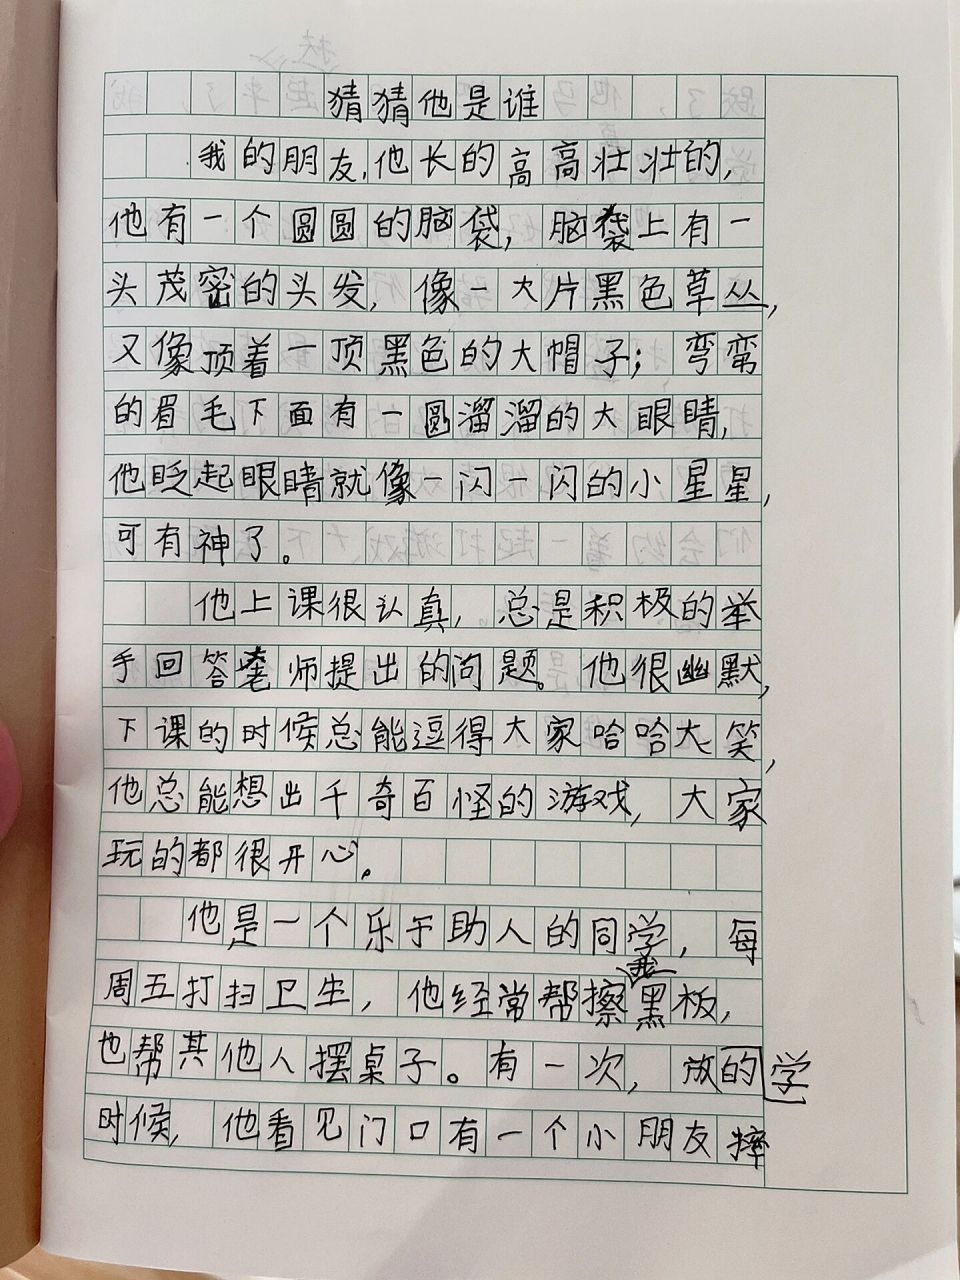 猜猜他是谁
我的朋友,他长的高高壮壮的,
他有一个圆圆的脑袋,脑袋上有一
头茂密的头发,像一大片黑色草丛,
又像顶着一顶黑色的大帽子;弯弯
的眉毛下面有一圆溜溜的大眼睛,
他眨起眼睛就像一闪一闪的小星星,
可有神了。
他上课很认真,总是积极的举
手回答老师提出的问题。他很幽默,
下课的时候总能逗得大家哈哈大笑,
他总能想出千奇百怪的游戏,大家
玩的都很开心。
他是一个乐于助人的同学,每
周五打扫卫生,他经常帮我擦黑板,
也帮其他人摆桌子。有一次,放学的
时候,他看见门口有一个小朋友摔